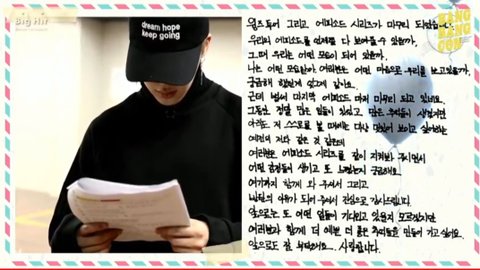 Big Hit
dream hope
keep going
BANG
BANG
CON
윙즈 투어 그리고 에피소드 시리즈가 마무리 되었습니다.
우리의 에피소드를 언제쯤 다 보여줄 수 있을까,
그때 우리는 어떤 모습이 되어 있을까,
나는 어떤 모습일까 여러분은 어떤 마음으로 우리를 보고있을까,
궁금해 했던게 같은데
근데 벌써 마지막 에피소드 마저 마무리 되고 있네요.
그동안 정말 많은 일들이 있었고, 많은 추억들이 생겼지만
아직도 저 스스로를 볼 때에는 마냥 멋있어 보이고 싶어하는
예전의 저와 같은 것 같은데
여러분은 에피소드 시리즈를 같이 지켜봐 주시면서
어떤 감정들이 생기고 또 느꼈는지 궁금해요.
여기까지 함께 와 주셔서 그리고
이유가 되어 주셔서 진심으로 감사드립니다.
앞으로는 또 어떤 일들이 기다리고 있을지 모르겠지만
여러분과 함께 더 예쁜 더 좋은 추억들을 만들어 가고 싶어요.
앞으로도 잘 부탁해요... 사랑합니다.